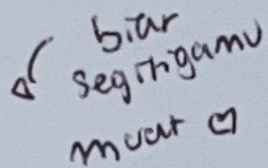 biar
segitigamu
muat ♡